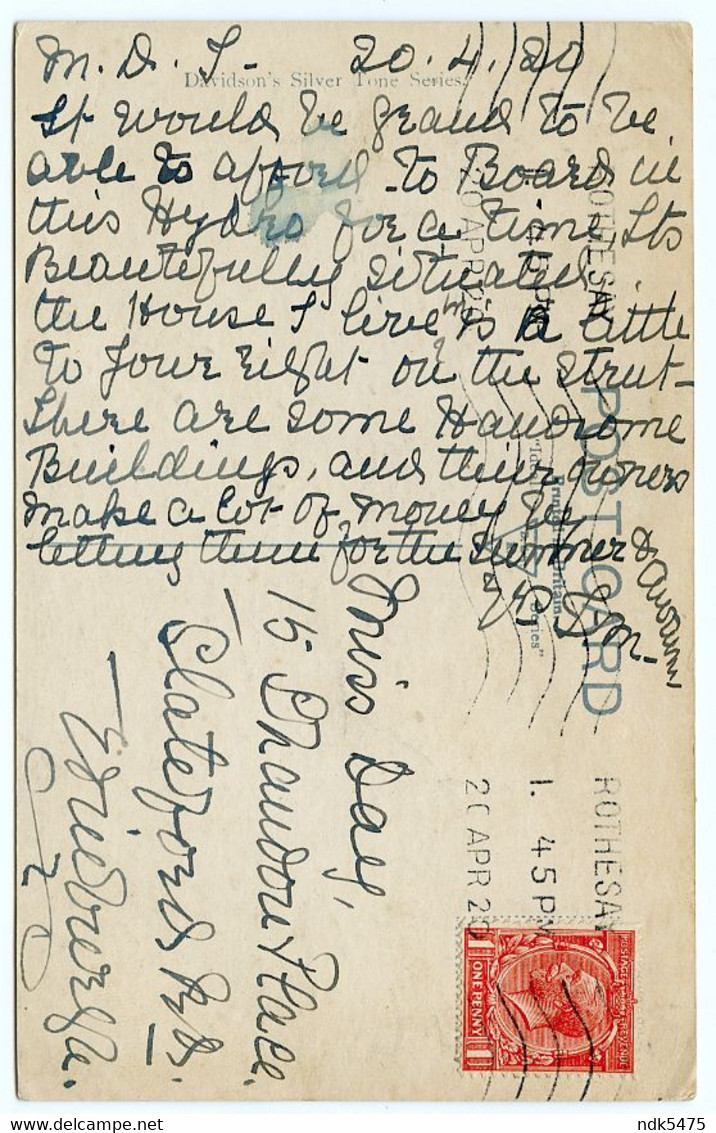 M. D. I - 20. 4. 20
Davidson's Silver Tone Series.
It would be grand to be
able to afford to Board in
this Hydro for a time, Its
Beautifully situated.
the House I live in is a little
to your right on the street -
There are some Handsome
Buildings, and their owners
make a lot of money by
letting them for the Summer &
Miss Day,
15 Shandon Place
Slateford Rd.
Edinburgh.
POST CARD
ROTHESAY
1. 45 PM
20 APR 20
ROTHESAY
1. 45 PM
20 APR 20
POSTAGE REVENUE
ONE PENNY
ndk5475